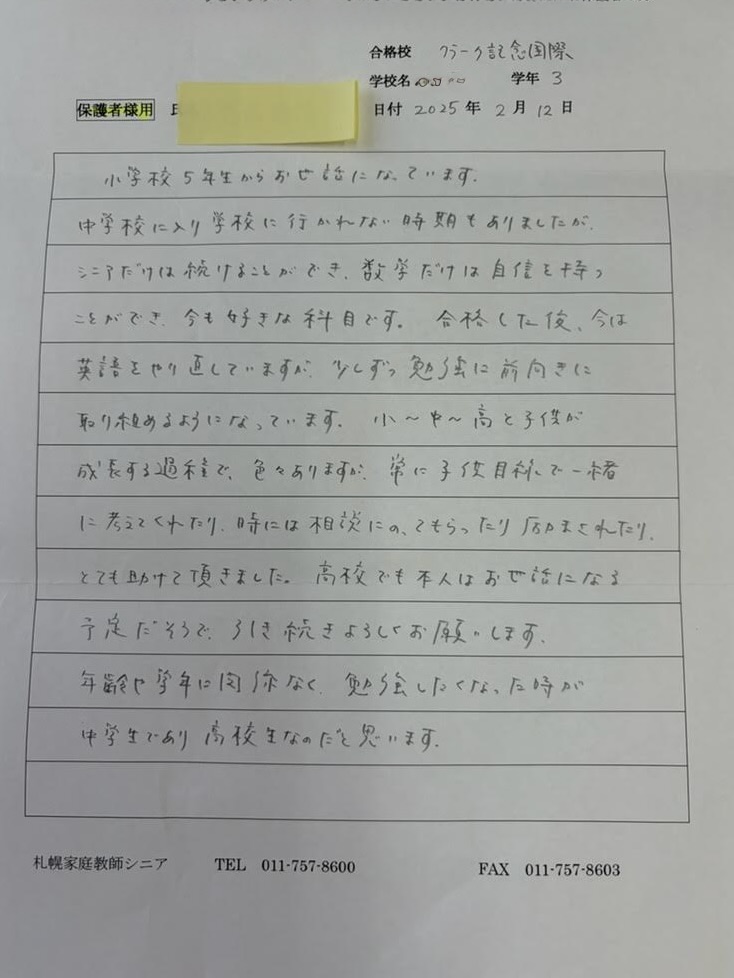 合格校 クラーク記念国際
学校名 学年 3
保護者様用 日付 2025 年 2 月 12 日
小学校5年生からお世話になっています。
中学校に入り学校に行かれない時期もありましたが、
シニアだけは続けることができ、数学だけは自信を持つ
ことができ、今も好きな科目です。 合格した後、今は
英語をやり直していますが、少しずつ勉強に前向きに
取り組めるようになっています。 小〜中〜高と子供が
成長する過程で、色々ありますが、常に子供目線で一緒
に考えてくれたり、時には相談にのってもらったり励まされたり、
とても助けて頂きました。高校でも本人はお世話になる
予定だそうで、引き続きよろしくお願いします。
年齢や学年に関係なく、勉強したくなった時が
中学生であり高校生なのだと思います。
札幌家庭教師シニア TEL 011-757-8600 FAX 011-757-8603